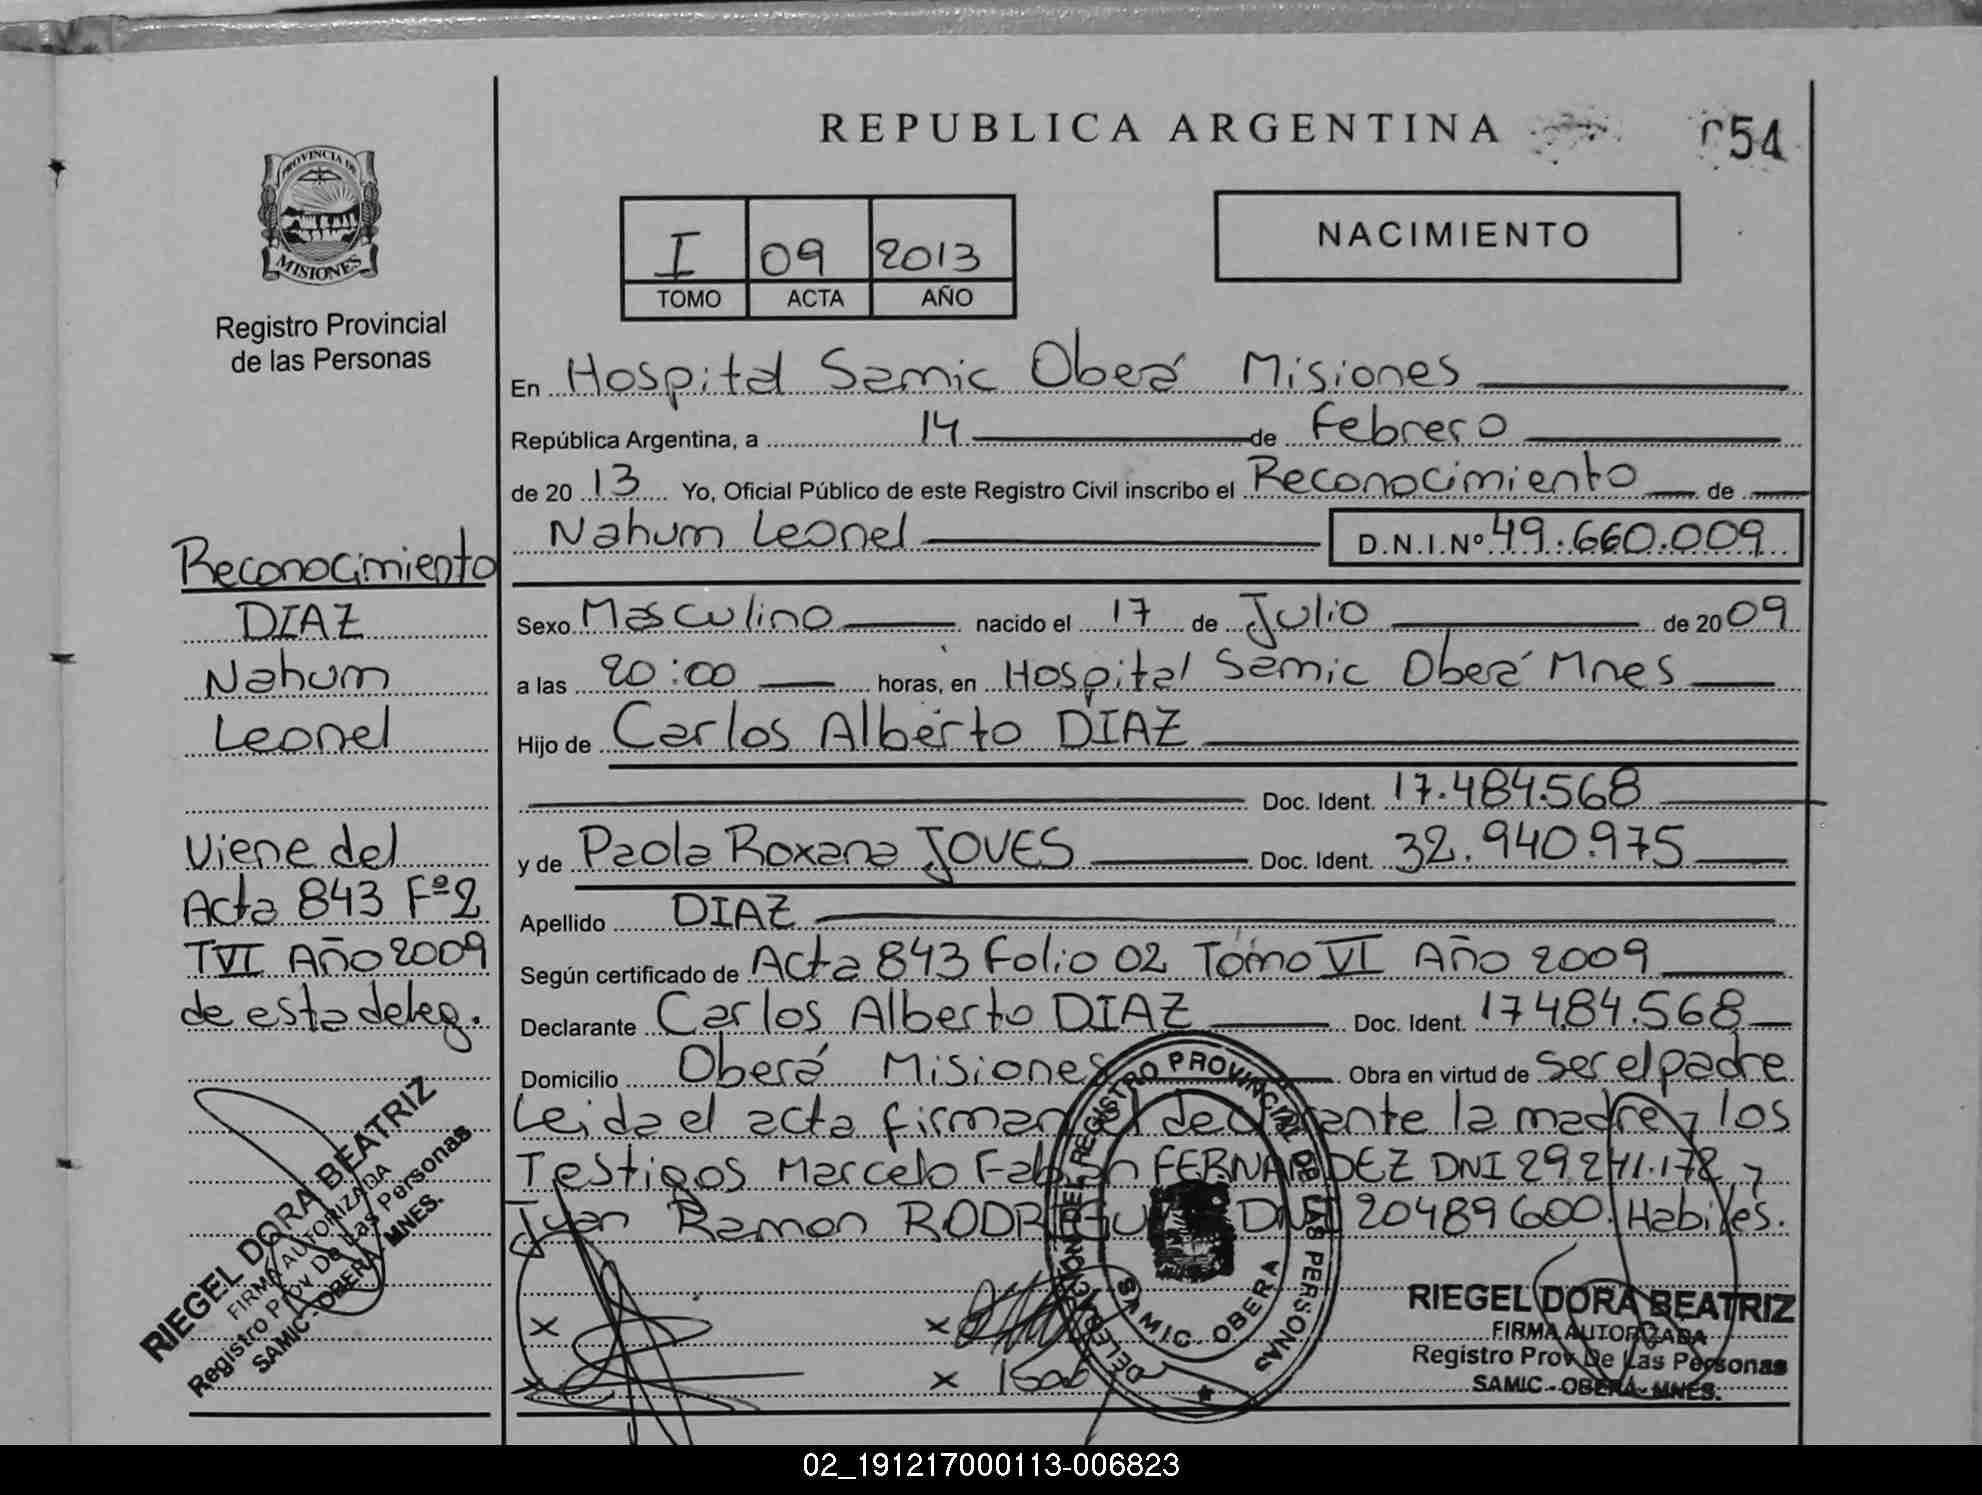 REPUBLICA ARGENTINA
054
PROVINCIA DE
MISIONES
Registro Provincial
de las Personas
I 09 2013
TOMO ACTA AÑO
NACIMIENTO
En Hospital Samic Oberá Misiones
República Argentina, a 14 de Febrero
de 20 13 Yo, Oficial Público de este Registro Civil inscribo el Reconocimiento de
Nahum Leonel D.N.I.Nº 49.660.009
Sexo Masculino nacido el 17 de Julio de 20 09
a las 20:00 horas, en Hospital Samic Oberá Mnes
Hijo de Carlos Alberto DIAZ
Doc. Ident. 17.484.568
y de Paola Roxana JOVES Doc. Ident. 32.940.975
Apellido DIAZ
Según certificado de Acta 843 Folio 02 Tomo VI Año 2009
Declarante Carlos Alberto DIAZ Doc. Ident. 17484.568
Domicilio Oberá Misiones Obra en virtud de ser el padre
Leida el acta firman el declarante la madre y los
Testigos Marcelo Fabian FERNANDEZ DNI 29.241.178 y
Juan Ramon RODRIGUEZ DNI 20489600. Habiles.
Reconocimiento
DIAZ
Nahum
Leonel
Viene del
Acta 843 Fº2
TVI Año 2009
de esta deleg.
RIEGEL DORA BEATRIZ
FIRMA AUTORIZADA
Registro Prov De Las Personas
SAMIC - OBERA - MNES.
x x
x x
DELEGACION DEL REGISTRO PROVINCIAL DE LAS PERSONAS
SAMIC - OBERA
RIEGEL DORA BEATRIZ
FIRMA AUTORIZADA
Registro Prov De Las Personas
SAMIC - OBERA - MNES.
02_191217000113-006823